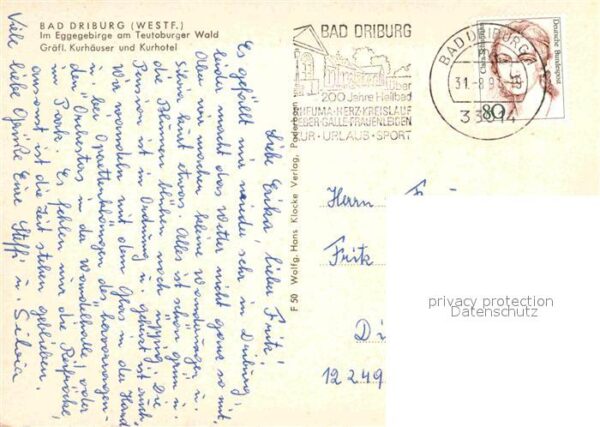 BAD DRIBURG (WESTF.)
Im Eggegebirge am Teutoburger Wald
Gräfl. Kurhäuser und Kurhotel
Liebe Erika, lieber Fritz!
Es gefällt mir wieder sehr in Driburg,
leider macht das Wetter nicht ganz so mit.
Aber wir machen kleine Wanderungen u.
Silvia kurt etwas. Alles ist schön grün u.
die Blumen blühen noch so üppig. Die
Pension ist in Ordnung u. geheizt ist auch.
Wir wandeln mit dem Glas in der Hand
u. bei Operettenklängen des hervorragen-
den Orchesters in der Wandelhalle oder
im Park. Es fehlen nur die Reifröcke,
sonst ist die Zeit stehen geblieben.
Viele liebe Grüße Eure Steffi u. Silvia
F 50 Wolfg. Hans Klocke Verlag, Paderborn
BAD DRIBURG
Über
200 Jahre Heilbad
RHEUMA·HERZ·KREISLAUF
LEBER·GALLE·FRAUENLEIDEN
KUR·URLAUB·SPORT
BAD DRIBURG
31.-8.9
33014
Deutsche Bundespost
80
Herrn
Fritz
D
12249
privacy protection
Datenschutz